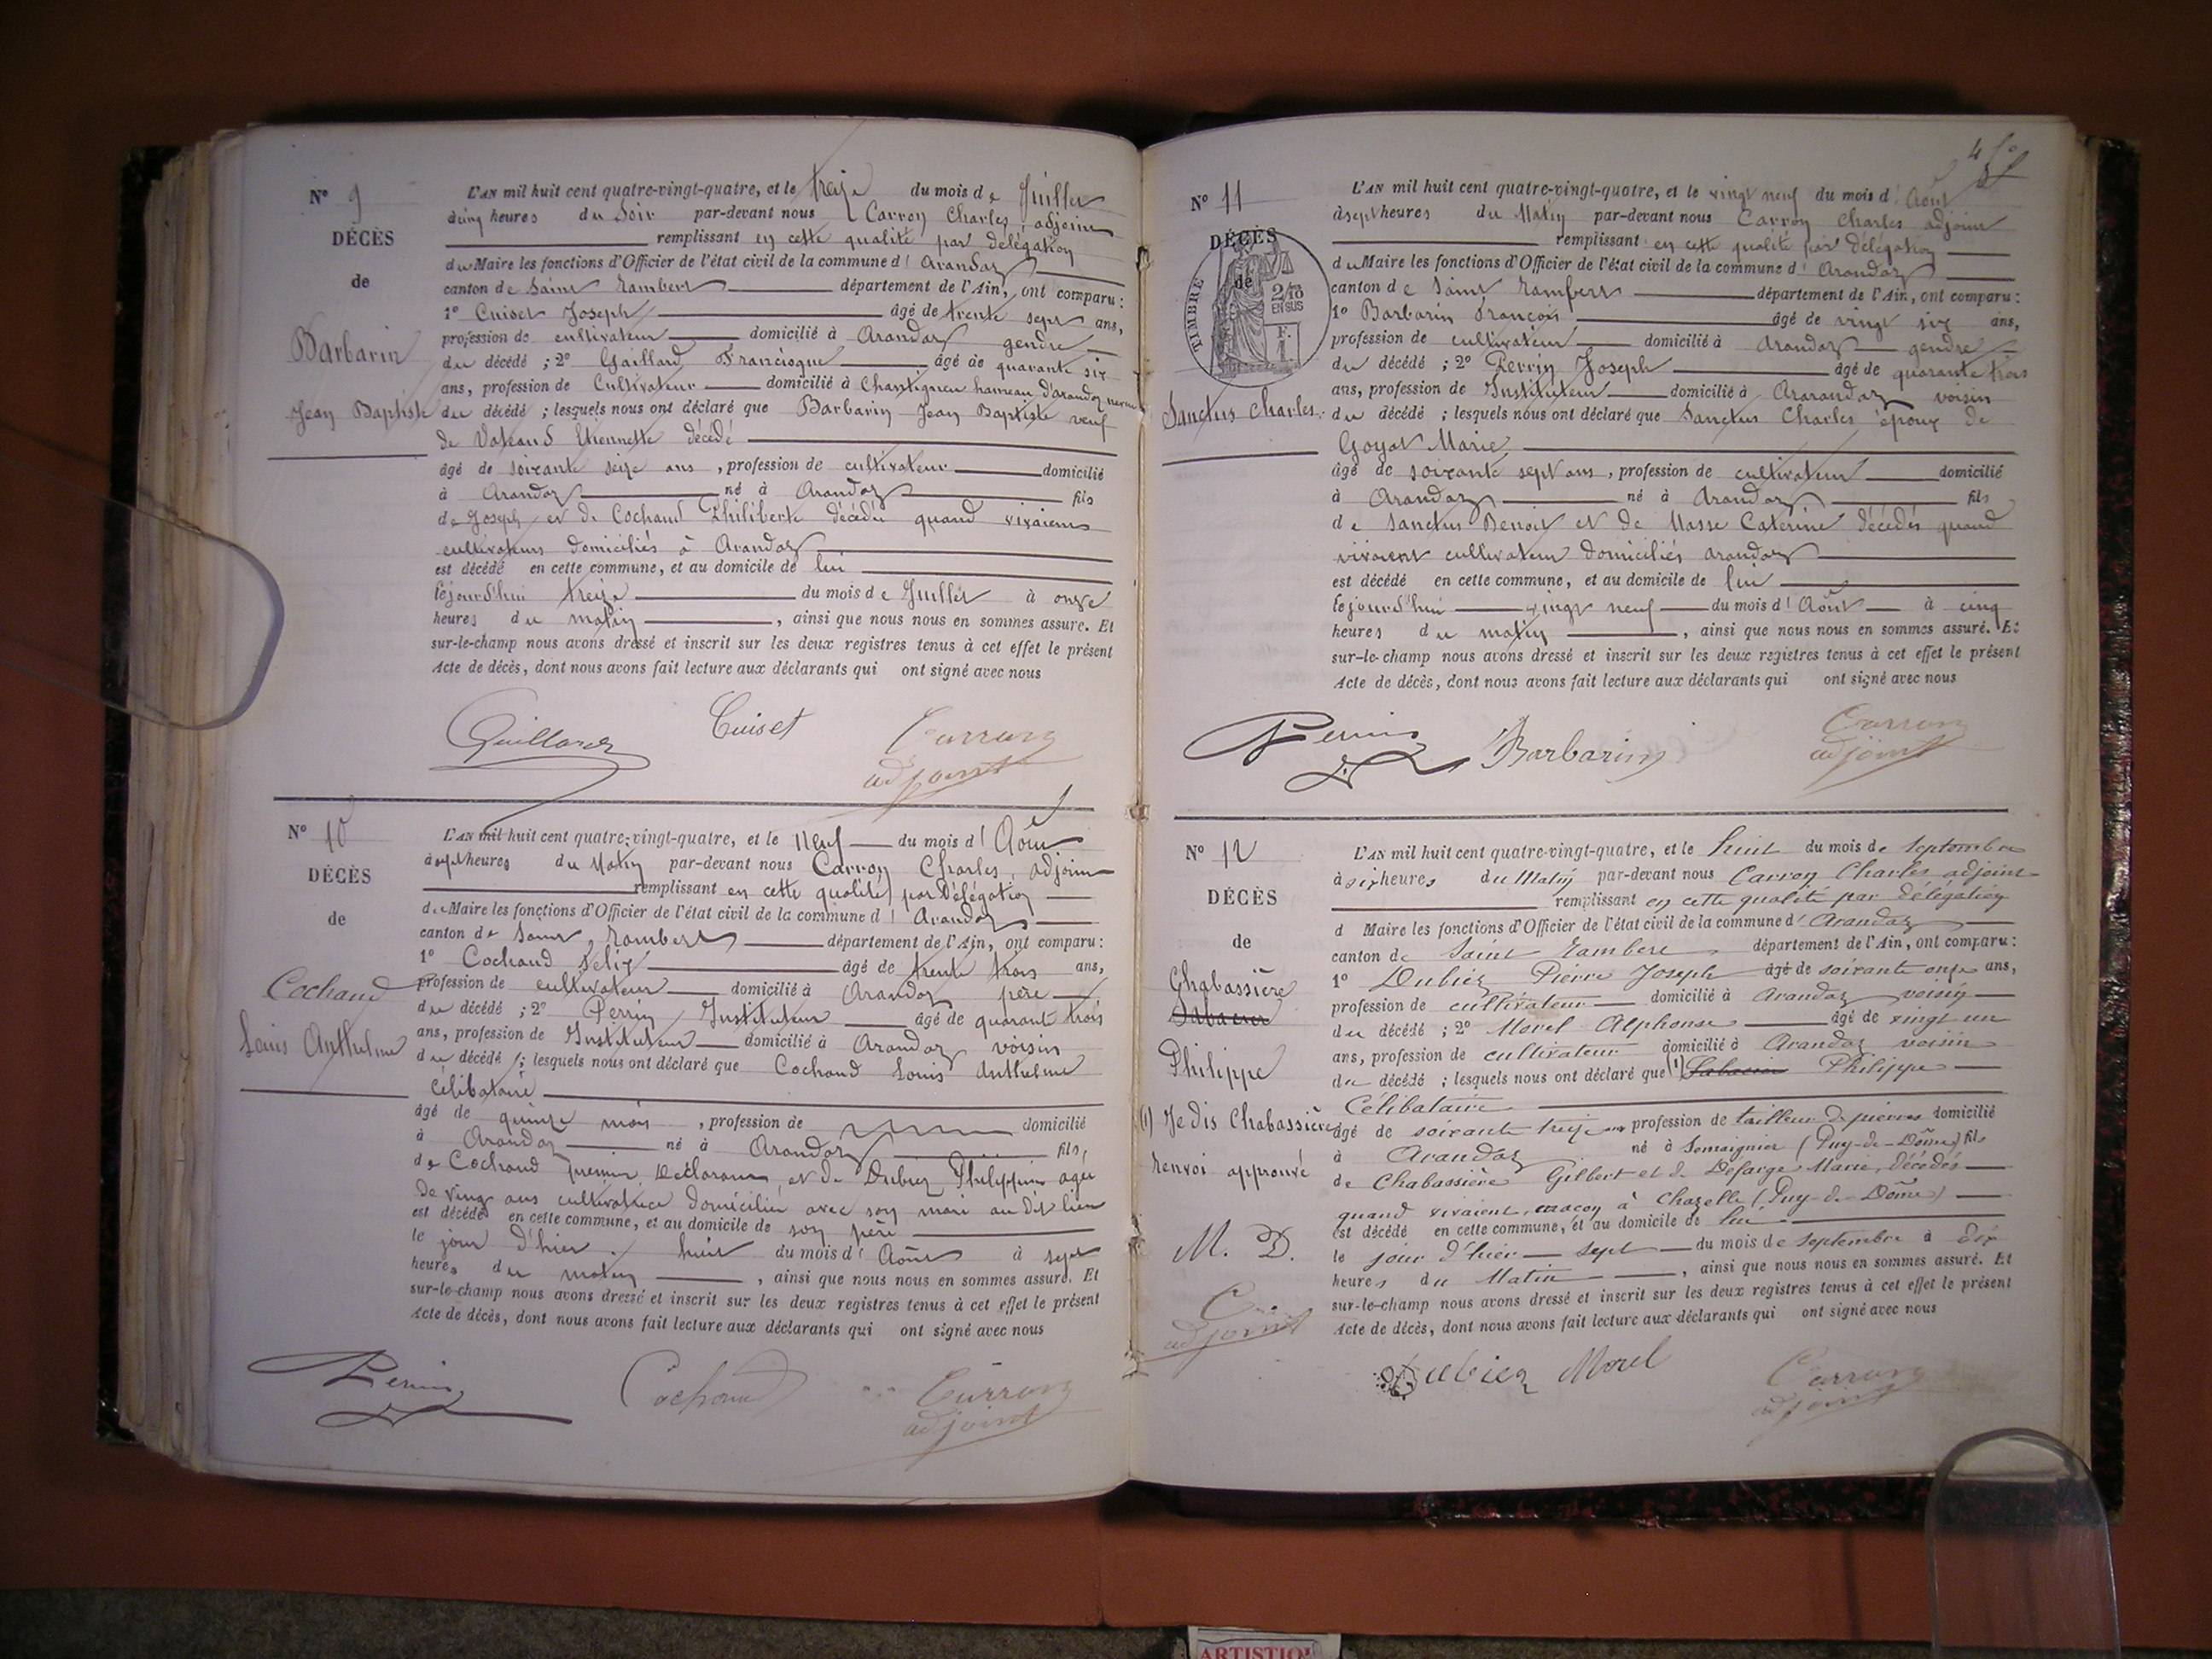 N° 9
DÉCÈS
de
Barbarin
Jean Baptiste
L'AN mil huit cent quatre-vingt-quatre, et le treize du mois de Juillet
à cinq heures du Soir par-devant nous Carron Charles, adjoint
remplissant en cette qualité par délégation
du Maire les fonctions d'Officier de l'état civil de la commune d'Arandas
canton de Saint Rambert département de l'Ain, ont comparu :
1° Cuiset Joseph âgé de trente sept ans,
profession de cultivateur domicilié à Arandas gendre
du décédé ; 2° Gaillard Francisque âgé de quarante six
ans, profession de Cultivateur domicilié à Chantigneu hameau d'arandas neveu
du décédé ; lesquels nous ont déclaré que Barbarin Jean Baptiste veuf
de Etiennette décédé
âgé de soixante seize ans, profession de cultivateur domicilié
à Arandas né à Arandas fils
de Joseph et de Cochand Philiberte décédés quand vivaient
cultivateurs domiciliés à Arandas
est décédé en cette commune, et au domicile de lui
le jourd'hui treize du mois de Juillet à onze
heures du matin, ainsi que nous nous en sommes assuré. Et
sur-le-champ nous avons dressé et inscrit sur les deux registres tenus à cet effet le présent
Acte de décès, dont nous avons fait lecture aux déclarants qui ont signé avec nous
Guillard Cuiset Carron
adjoint
N° 10
DÉCÈS
de
Cochand
Louis Anthelme
L'AN mil huit cent quatre-vingt-quatre, et le Neuf du mois d'Août
à sept heures du Matin par-devant nous Carron Charles, adjoint
remplissant en cette qualité par Délégation
du Maire les fonctions d'Officier de l'état civil de la commune d'Arandas
canton de Saint Rambert département de l'Ain, ont comparu :
1° Cochand Félix âgé de trente trois ans,
profession de cultivateur domicilié à Arandas père
du décédé ; 2° Perrin Instituteur âgé de quarante trois
ans, profession de Instituteur domicilié à Arandas voisin
du décédé ; lesquels nous ont déclaré que Cochand Louis Anthelme
Célibataire
âgé de quinze mois, profession de domicilié
à Arandas né à Arandas fils
de Cochand premier Déclarant et de Dubiez Philippine agée
de vingt ans cultivatrice domiciliée avec son mari au dit lieu
est décédé en cette commune, et au domicile de son père
le jour d'hier huit du mois d'Août à sept
heures du matin, ainsi que nous nous en sommes assuré. Et
sur-le-champ nous avons dressé et inscrit sur les deux registres tenus à cet effet le présent
Acte de décès, dont nous avons fait lecture aux déclarants qui ont signé avec nous
Perrin Cochand Carron
adjoint
N° 11
DÉCÈS
de
TIMBRE
2/10
EN SUS
F.
1
Sanctus Charles
L'AN mil huit cent quatre-vingt-quatre, et le vingt neuf du mois d'Août
à sept heures du Matin par-devant nous Carron Charles adjoint
remplissant en cette qualité par délégation
du Maire les fonctions d'Officier de l'état civil de la commune d'Arandas
canton de Saint Rambert département de l'Ain, ont comparu :
1° Barbarin François âgé de vingt six ans,
profession de cultivateur domicilié à Arandas gendre
du décédé ; 2° Perrin Joseph âgé de quarante trois
ans, profession de Instituteur domicilié à Ararandas voisin
du décédé ; lesquels nous ont déclaré que Sanctus Charles époux de
Goyat Marie
âgé de soixante sept ans, profession de cultivateur domicilié
à Arandas né à Arandas fils
de Sanctus Benoit et de Masse Caterine décédés quand
vivaient cultivateur domiciliés arandas
est décédé en cette commune, et au domicile de lui
le jourd'hui vingt neuf du mois d'Août à cinq
heures du matin, ainsi que nous nous en sommes assuré. Et
sur-le-champ nous avons dressé et inscrit sur les deux registres tenus à cet effet le présent
Acte de décès, dont nous avons fait lecture aux déclarants qui ont signé avec nous
Perrin Barbarin Carron
adjoint
N° 12
DÉCÈS
de
Chabassière
Philippe
(1) Je dis Chabassière
renvoi approuvé
M. D.
C
adjoint
L'AN mil huit cent quatre-vingt-quatre, et le huit du mois de Septembre
à six heures du Matin par-devant nous Carron Charles adjoint
remplissant en cette qualité par délégation
d Maire les fonctions d'Officier de l'état civil de la commune d'Arandas
canton de Saint Rambert département de l'Ain, ont comparu :
1° Dubiez Pierre Joseph âgé de soixante onze ans,
profession de cultivateur domicilié à Arandas voisin
du décédé ; 2° Morel Alphonse âgé de vingt un
ans, profession de cultivateur domicilié à Arandas voisin
du décédé ; lesquels nous ont déclaré que (1) Philippe
Célibataire
âgé de soixante treize ans profession de tailleur de pierres domicilié
à Arandas né à (Puy-de-Dôme) fils
de Chabassière Gilbert et de Defarge Marie, décédés
quand vivaient, maçon à Chazelle (Puy-de-Dôme)
est décédé en cette commune, et au domicile de lui
le jour d'hier sept du mois de Septembre à dix
heures du Matin, ainsi que nous nous en sommes assuré. Et
sur-le-champ nous avons dressé et inscrit sur les deux registres tenus à cet effet le présent
Acte de décès, dont nous avons fait lecture aux déclarants qui ont signé avec nous
Dubiez Morel Carron
adjoint